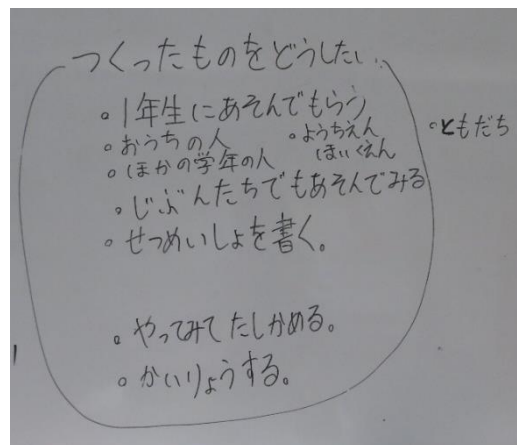 つくったものをどうしたい
。1年生にあそんでもらう
。おうちの人 。ようちえん
。ほかの学年の人 ほいくえん
。ともだち
。じぶんたちでもあそんでみる
。せつめいしょを書く。
。やってみてたしかめる。
。かいりょうする。